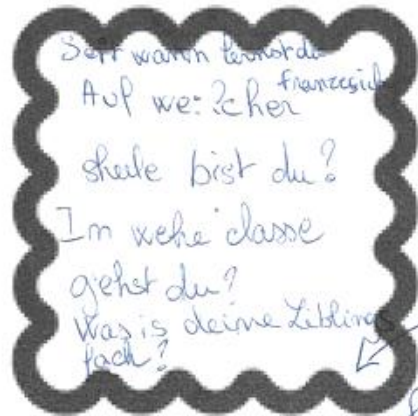 Seit wann lernst du
französich
Auf we??cher
shule bist du?
In welche classe
gehst du?
Was is deine Lieblings
fach?